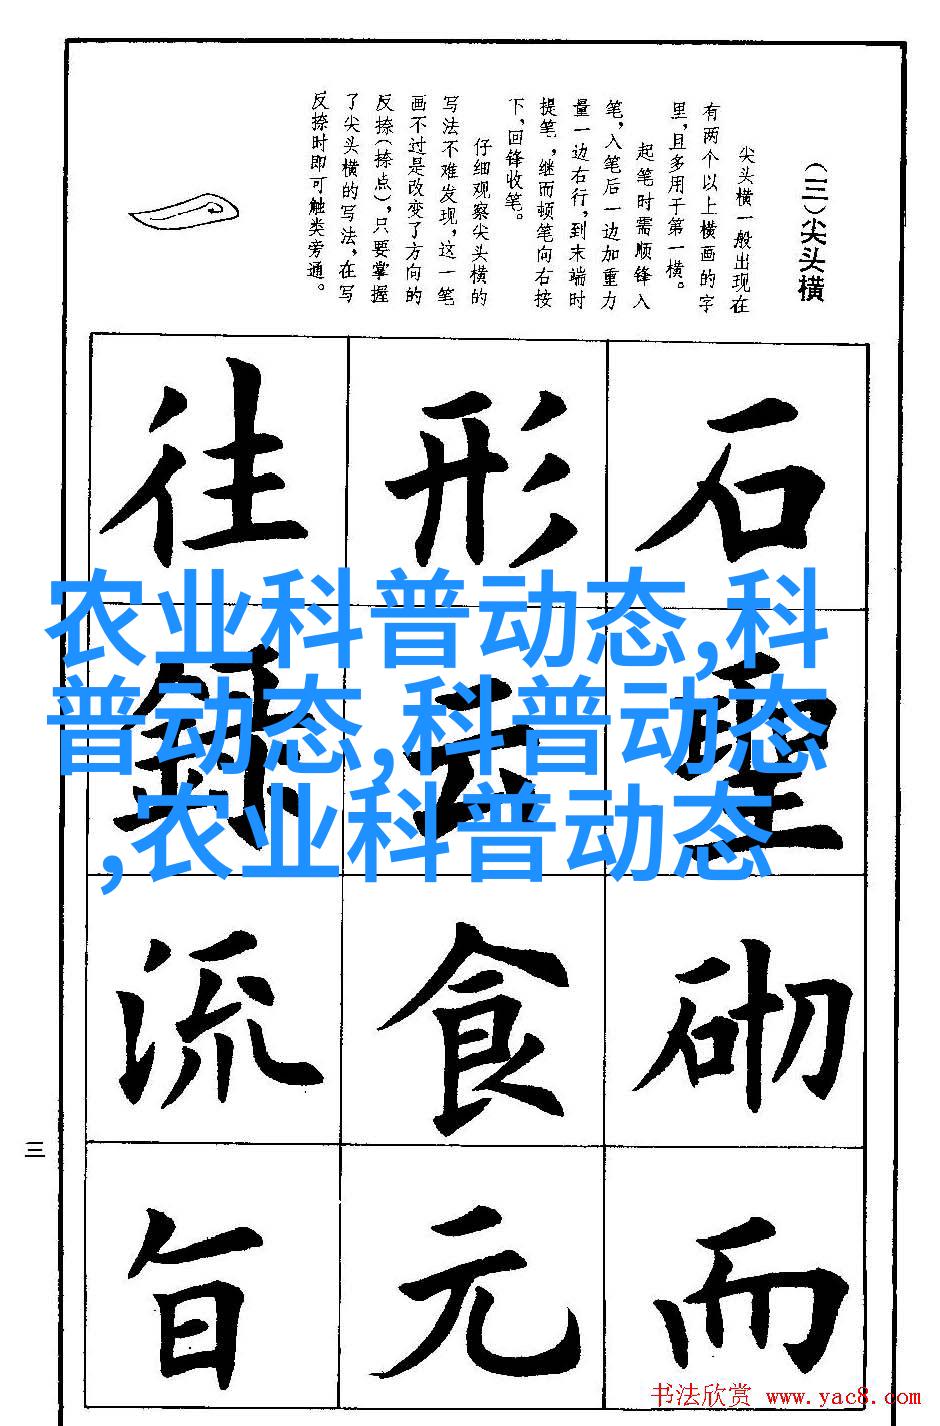 (三)尖头横
尖头横一般出现在
有两个以上横画的字
里,且多用于第一横。
起笔时需顺锋入
笔,入笔后一边加重力
量一边右行,到末端时
提笔,继而顿笔向右按
下,回锋收笔。
仔细观察尖头横的
写法不难发现,这一笔
画不过是改变了方向的
反捺(捺点),只要掌握
了尖头横的写法,在写
反捺时即可触类旁通。
石
形
往
农业科普动态,科
普动态,科普动态
,农业科普动态
圣
云
砌
食
流
而
元
旨
三
书法欣赏 www.yac8.com